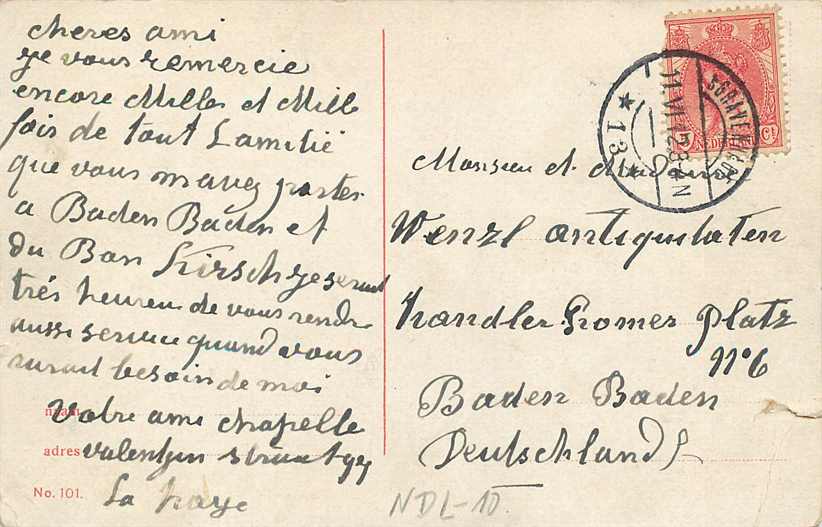 cheres ami
je vous remercie
encore Mille et Mille
fois de tout Lamitié
que vous mavez porter
a Baden Baden et
du Bon Kirsch je serait
trés heureu de vous rendre
aussi service quand vous
aurait besoin de moi
Votre ami chapelle
La haye
naam
adres
No. 101.
5 Ct
NEDERLAND
'SGRAVENHAGE
11 VI 12 8-9 N
* 13 *
Monsieu et Madame
Wenzl antiquitaten
handler Platz
N°6
Baden Baden
Deutschland
NDL-10